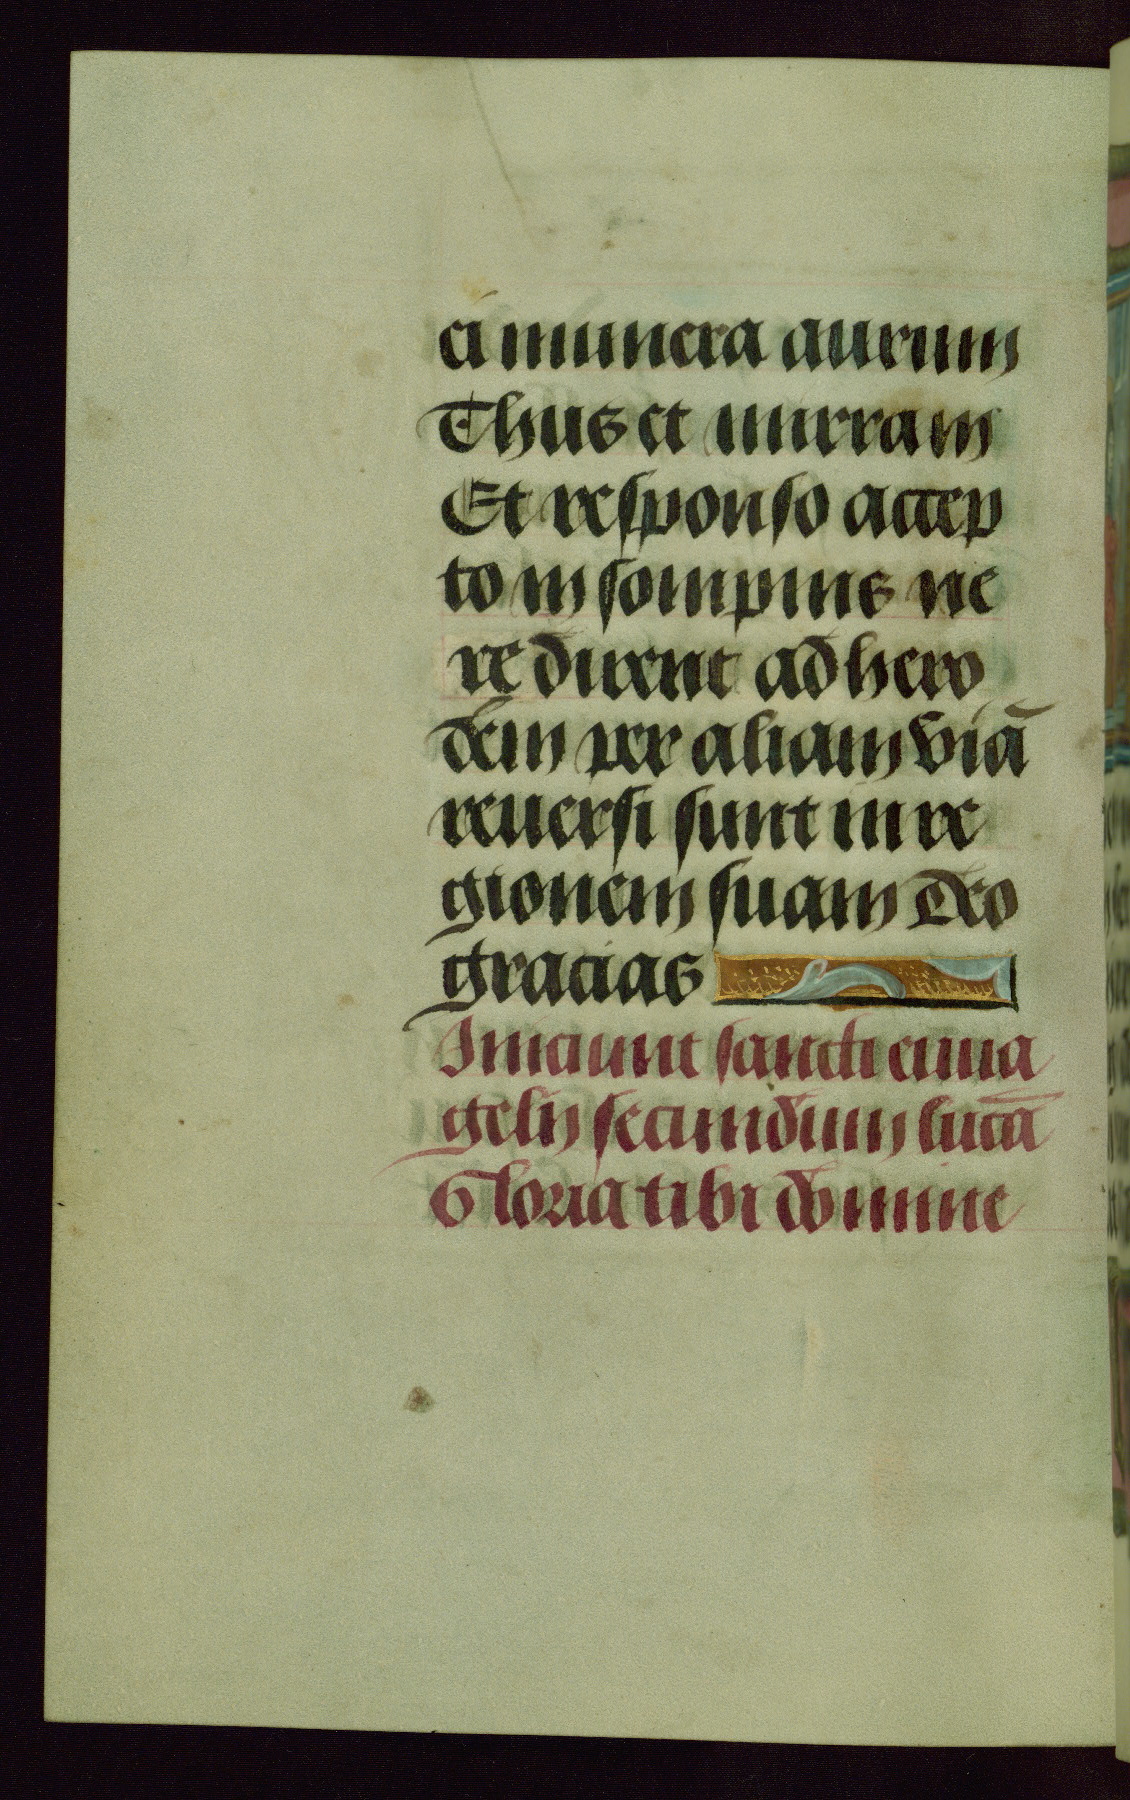 ei munera aurum
Thus et mirram
Et responso accep
to in sompnis ne
redirent ad hero
dem per aliam viā
reuersi sunt in re
gionem suam Deo
gracias
Iniciunt sancti euua
gelij secundum lucā
Gloria tibi domine